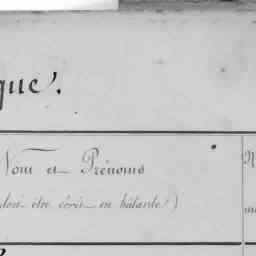 que.
Nom et Prénoms
doit être écrit en bâtarde)